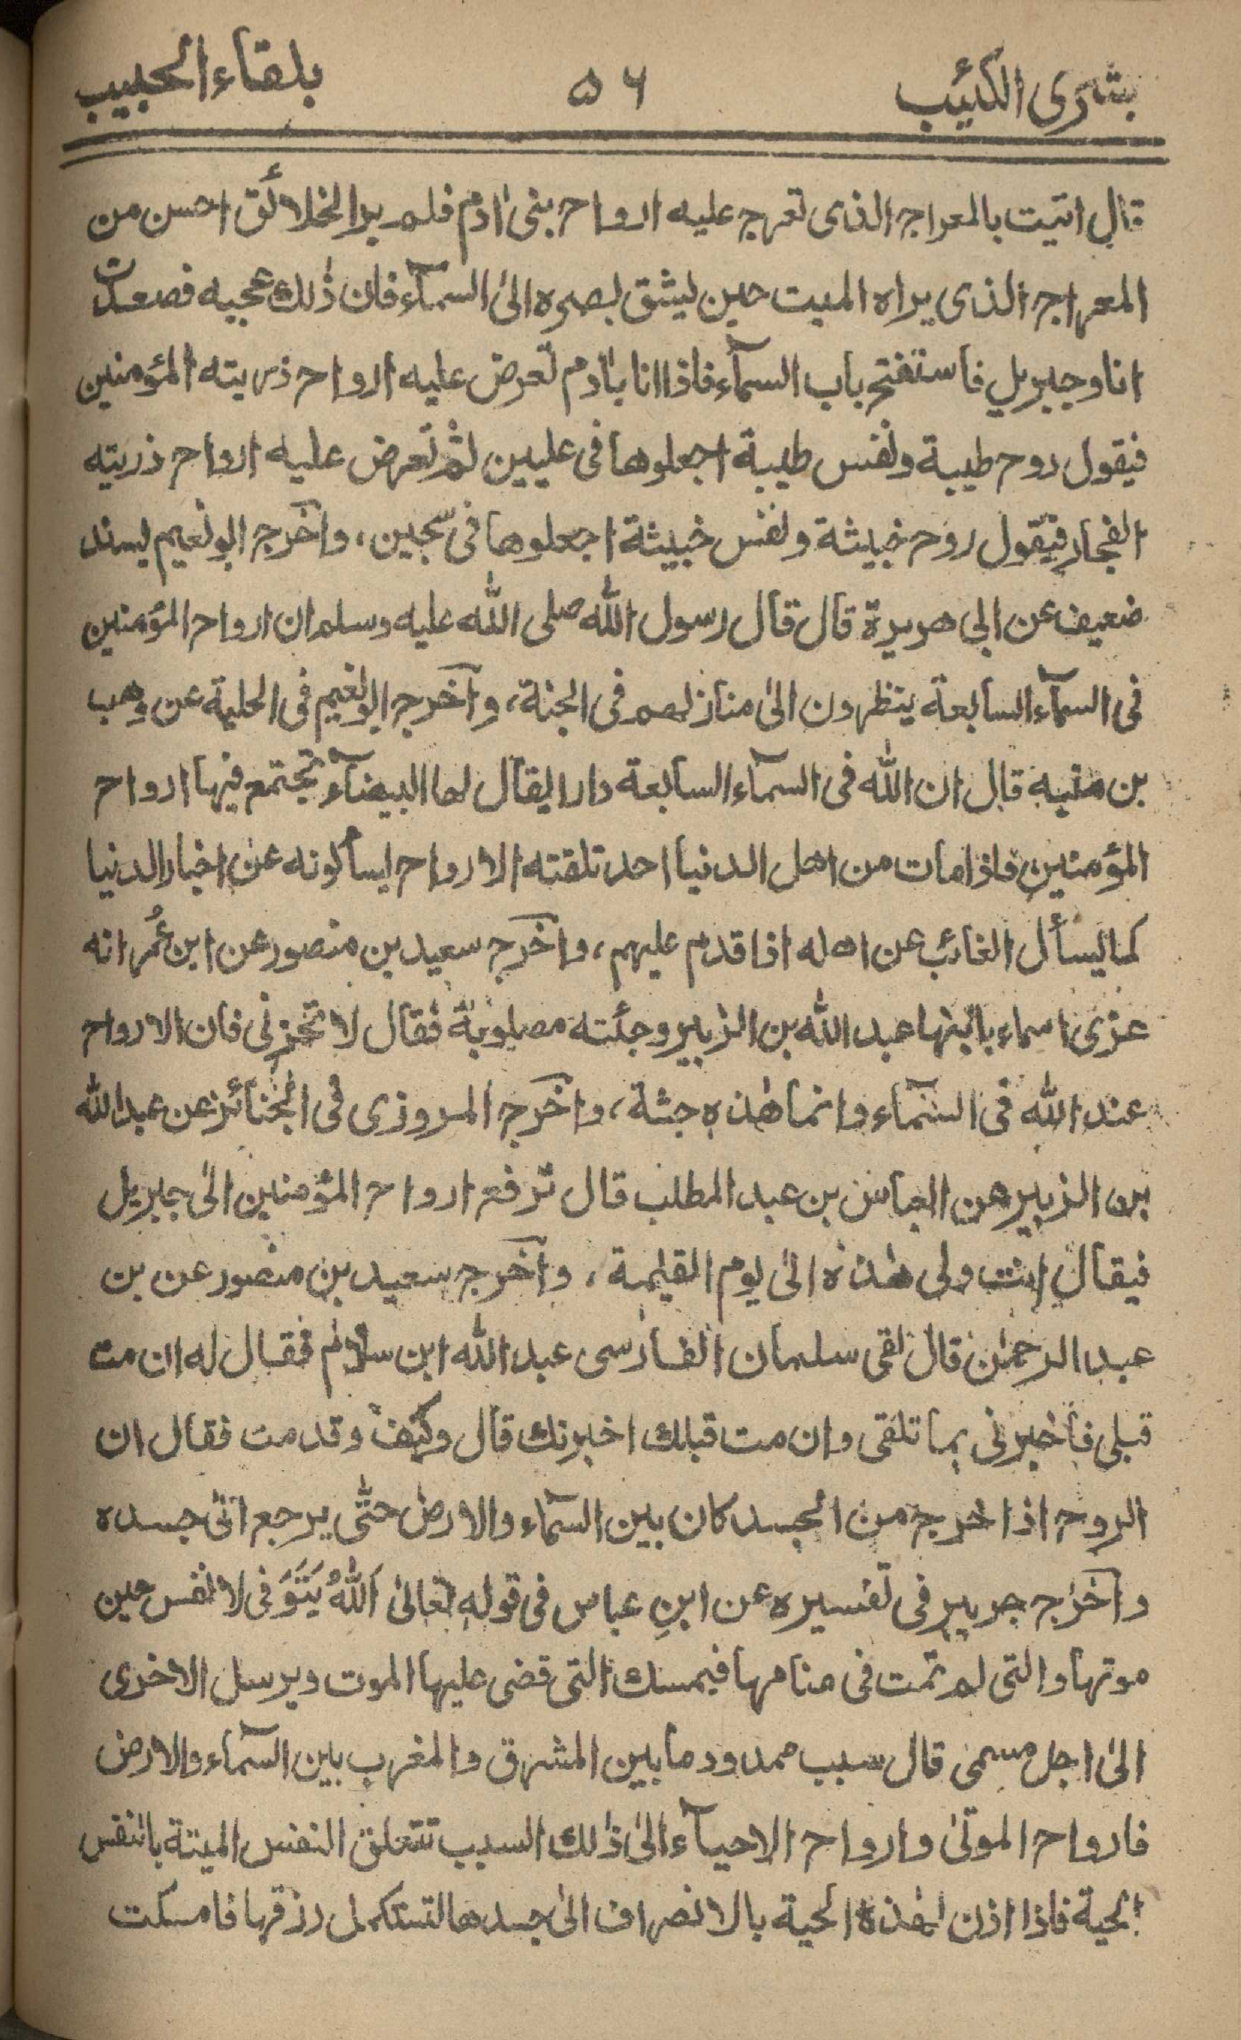 بشرى الكئيب ٥٦ بلقاء الحبيب
قال اتيت بالمعراج الذى تعرج عليه ارواح بنى اٰدم فلم ير الخلائق احسن من
المعراج الذى يراه الميت حين يشق بصره الى السمآء فان ذٰلك عجبه فصعدت
انا وجبريل فاستفتح باب السمآء فاذا انا باٰدم تعرض عليه ارواح ذريته المؤمنين
فيقول روح طيبة ونفس طيبة اجعلوها فى عليين ثم تعرض عليه ارواح ذريته
الفجار فيقول روح خبيثة ونفس خبيثة اجعلوها فى سجين، واخرج ابو نعيم بسند
ضعيف عن ابى هريرة قال قال رسول الله صلى الله عليه وسلم ان ارواح المؤمنين
فى السمآء السابعة ينظرون الىٰ منازلهم فى الجنة، واخرج ابو نعيم فى الحلية عن وهب
بن منبه قال ان الله فى السمآء السابعة دارا يقال لها البيضآء تجتمع فيها ارواح
المؤمنين فاذا مات من اهل الدنيا احد تلقته الارواح يسألونه عن اخبار الدنيا
كما يسأل الغائب عن اهله اذا قدم عليهم، واخرج سعيد بن منصور عن ابن عُمر انه
عزى اسماء بابنها عبد الله بن الزبير وجثته مصلوبة فقال لا تحزنى فان الارواح
عند الله فى السمآء وانما هٰذه جثة، واخرج المروزى فى الجنائز عن عبد الله
بن الزبير عن العباس بن عبد المطلب قال ترفع ارواح المؤمنين الىٰ جبريل
فيقال انت ولى هٰذه الىٰ يوم القيٰمة، واخرج سعيد بن منصور عن بن
عبد الرحمٰن قال لقى سلمان الفارسى عبد الله ابن سلام فقال له ان مت
قبلى فاخبرنى بما تلقى وان مت قبلك اخبرتك قال وكيف وقد مت فقال ان
الروح اذا خرج من الجسد كان بين السمآء والارض حتّٰى يرجع الىٰ جسده
واخرج جرير فى تفسيره عن ابنِ عباس فى قوله تعالىٰ اَللّٰهُ يَتَوَفى لانفس حين
موتها والتى لم تمت فى منامها فيمسك التى قضى عليها الموت ويرسل الاخرى
الىٰ اجل مسمى قال سبب ممدود ما بين المشرق والمغرب بين السمآء والارض
فارواح الموتىٰ وارواح الاحيآء الىٰ ذٰلك السبب تتعلق النفس الميتة بالنفس
الحية فاذا اذن لهٰذه الحية بالانصراف الىٰ جسدها لتستكمل رزقها فامسكت